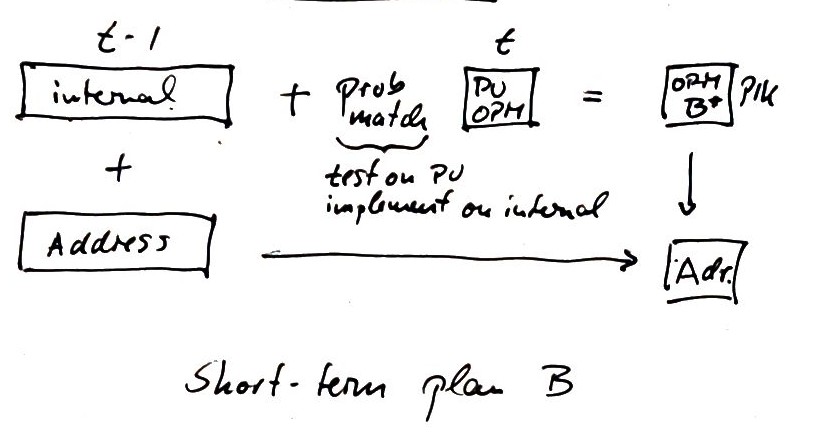 t-1
t
internal + prob match PU OPM = OPM B* PIK
test on PU
implement on internal
+
Address
Adr.
Short-term plan B